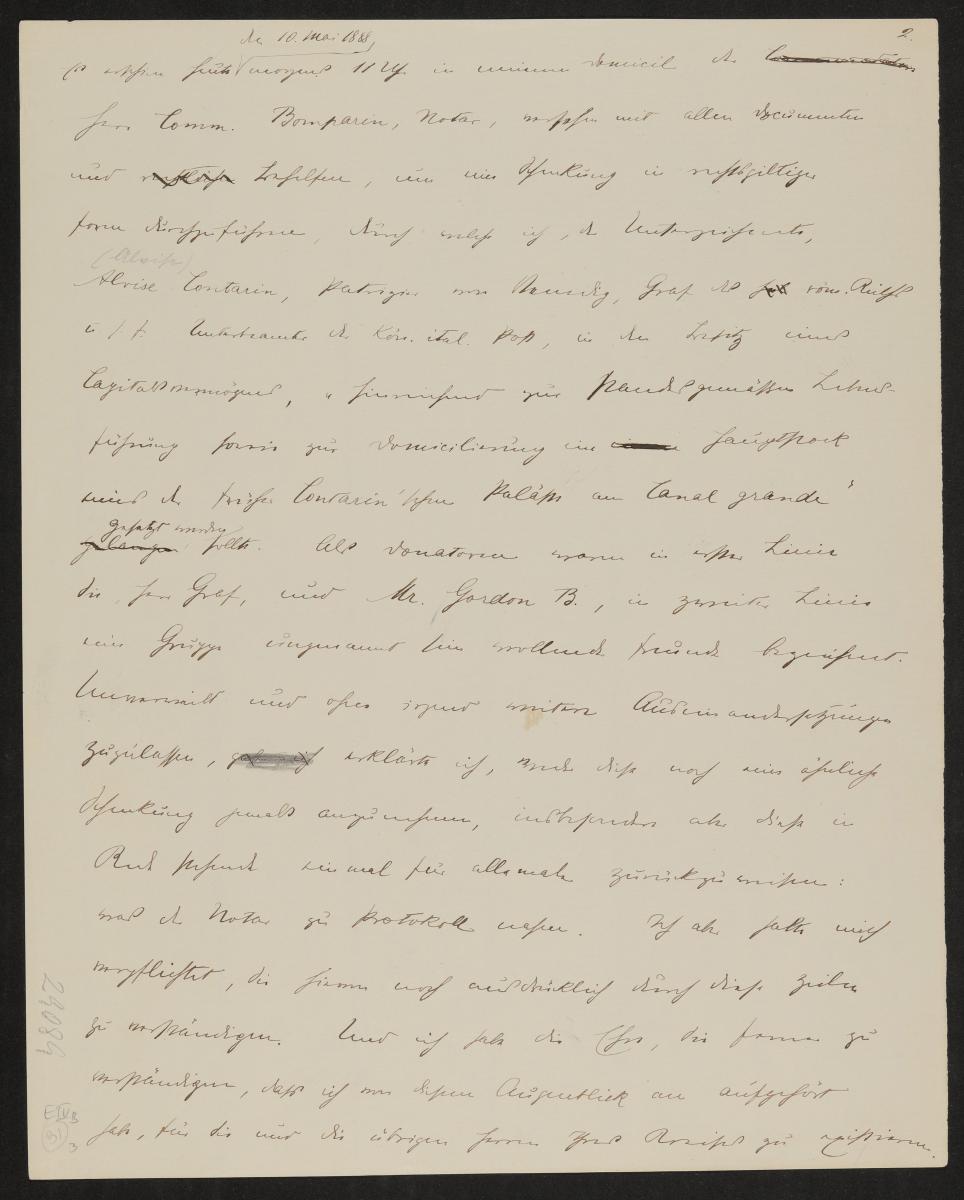 2.
den 10. Mai 1888,
Es erschien heute morgens 11 Uhr in meinem Domicil der
Herr Comm. Bomparin, Notar, versehen mit allen Documenten
und Behelfen, um eine Schenkung in rechtsgiltiger
Form durchzuführen, durch welche ich, der Unterzeichnete,
(Alvise)
Alvise Contarin, Patrizier von Venedig, Graf des röm. Reichs
u. s. f. Unterbeamter der Kön. ital. Post, in den Besitz eines
Capitalsvermögens, „hinreichend zur standesgemässen Lebens-
führung sowie zur Domicilierung im Hauptstock
eines der früher Contarin'schen Paläste am Canal grande"
gesetzt werden
gelangen sollte. Als Donatoren waren in erster Linie
Sie, Herr Graf, und Mr. Gordon B., in zweiter Linie
eine Gruppe ungenannt sein wollender Freunde bezeichnet.
Unverweilt und ohne irgend weitere Auseinandersetzungen
zuzulassen, erklärte ich, weder diese noch eine ähnliche
Schenkung jemals anzunehmen, insbesondere aber diese in
Rede stehende ein mal für allemale zurückzuweisen:
was der Notar zu Protokoll nahm. Ich aber halte mich
verpflichtet, Sie hievon noch ausdrücklich durch diese Zeilen
zu verständigen. Und ich habe die Ehre, Sie ferner zu
verständigen, dass ich von diesem Augenblick an aufgehört
habe, für Sie und die übrigen Herren Ihres Kreises zu existieren.
29084
E IV B
31
3